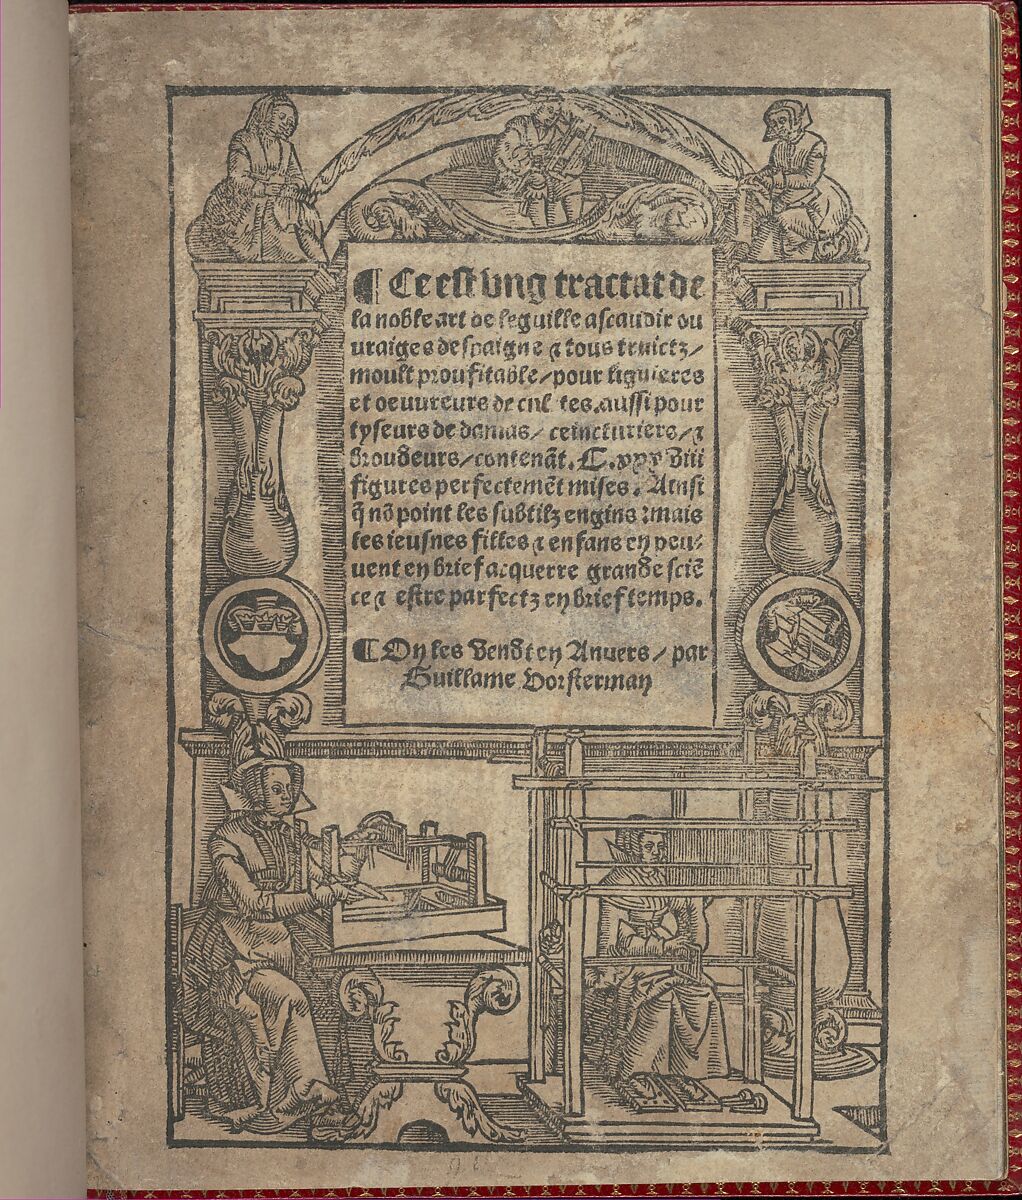 ¶ Ce est ung tractat de
la noble art de leguille ascauoir ou
uraiges de spaigne ⁊ tous
moult proufitable / pour
et oeuureurs de aussi pour
tyseurs de damas / ceincturiers / ⁊
broudeurs / contenāt. C. xxxviii
figures perfectemēt mises. Ainsi
q̄ nō point les subtilz engins : mais
les ieusnes filles ⁊ enfans en peu-
uent en brief acquerre grande sciē
ce ⁊ estre parfectz en brief temps.
¶ On les vendt en Anuers / par
Guillame Vorsterman